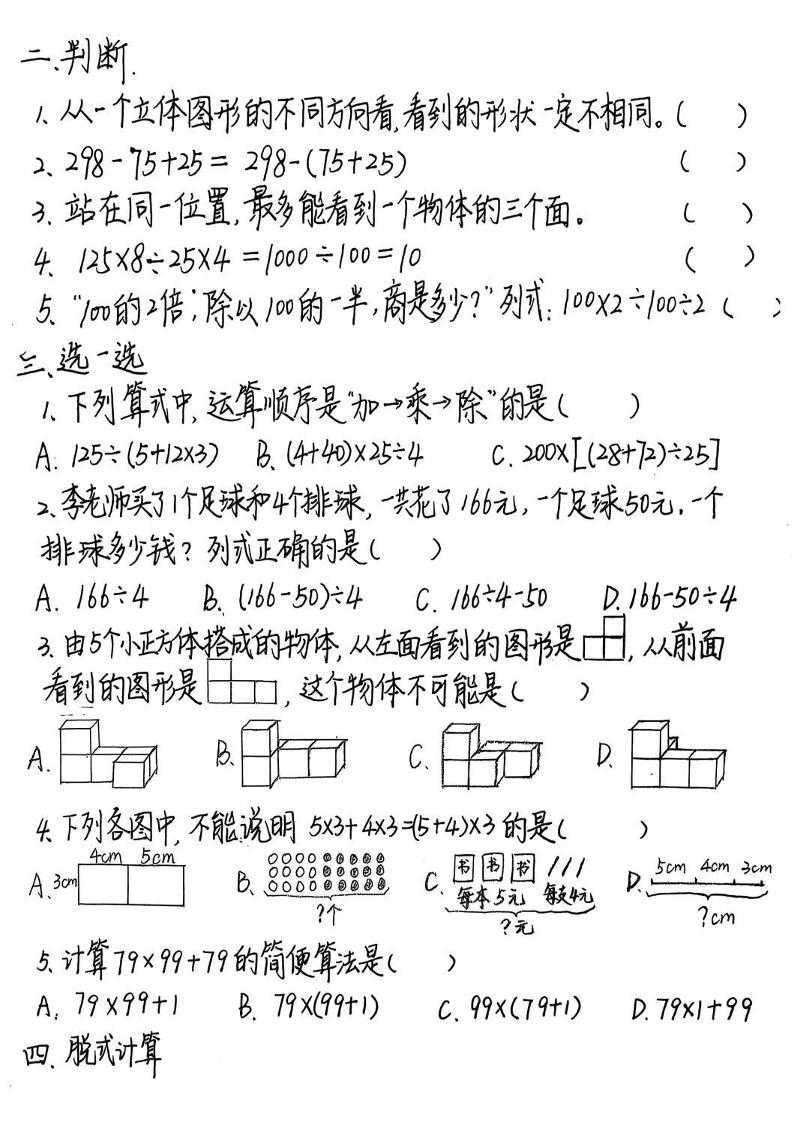 二、判断.
1、从一个立体图形的不同方向看,看到的形状一定不相同。(    )
2、298-75+25= 298-(75+25) (    )
3、站在同一位置,最多能看到一个物体的三个面。 (    )
4、125×8÷25×4=1000÷100=10 (    )
5、“100的2倍,除以100的一半,商是多少?”列式:100×2÷100÷2 (    )
三、选一选
1、下列算式中,运算顺序是“加→乘→除”的是(    )
A. 125÷(5+12×3) B. (4+40)×25÷4 C. 200×[(28+72)÷25]
2、李老师买了1个足球和4个排球,一共花了166元,一个足球50元,一个
排球多少钱?列式正确的是(    )
A. 166÷4 B. (166-50)÷4 C. 166÷4-50 D. 166-50÷4
3、由5个小正方体搭成的物体,从左面看到的图形是 ,从前面
看到的图形是 ,这个物体不可能是(    )
A. B. C. D.
4.下列各图中,不能说明 5×3+4×3=(5+4)×3的是(    )
4cm 5cm 书 书 书 5cm 4cm 3cm
A. 3cm B. C. D.
每本5元 每支4元
?个 ?元 ?cm
5、计算79×99+79的简便算法是(    )
A. 79×99+1 B. 79×(99+1) C. 99×(79+1) D. 79×1+99
四、脱式计算